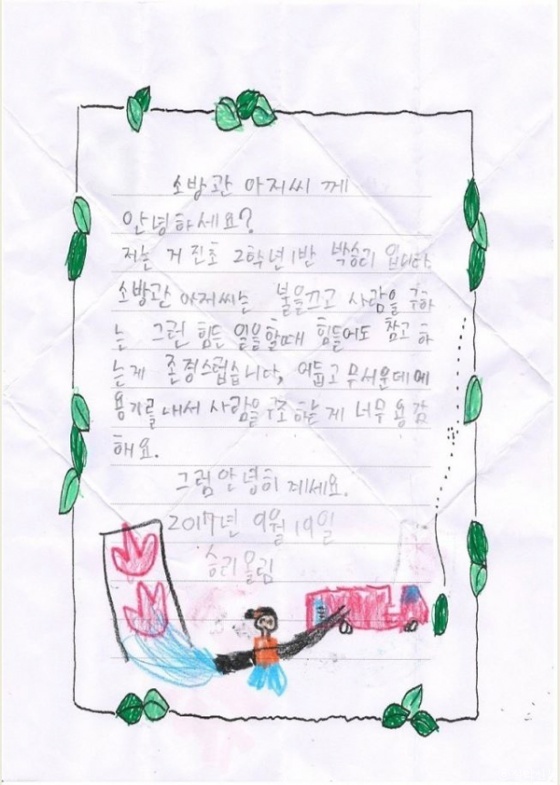 소방관 아저씨 께
안녕하세요?
저는 거진초 2학년1반 박승리 입니다.
소방관 아저씨는 불을끄고 사람을 구하
는 그런 힘든 일을할때 힘들어도 참고 하
는게 존경스럽습니다, 어둡고 무서운데에
용기를 내서 사람을 구조 하는 게 너무 용감
해요.
그럼안녕히 계세요.
2017년 9월 19일
승리올림